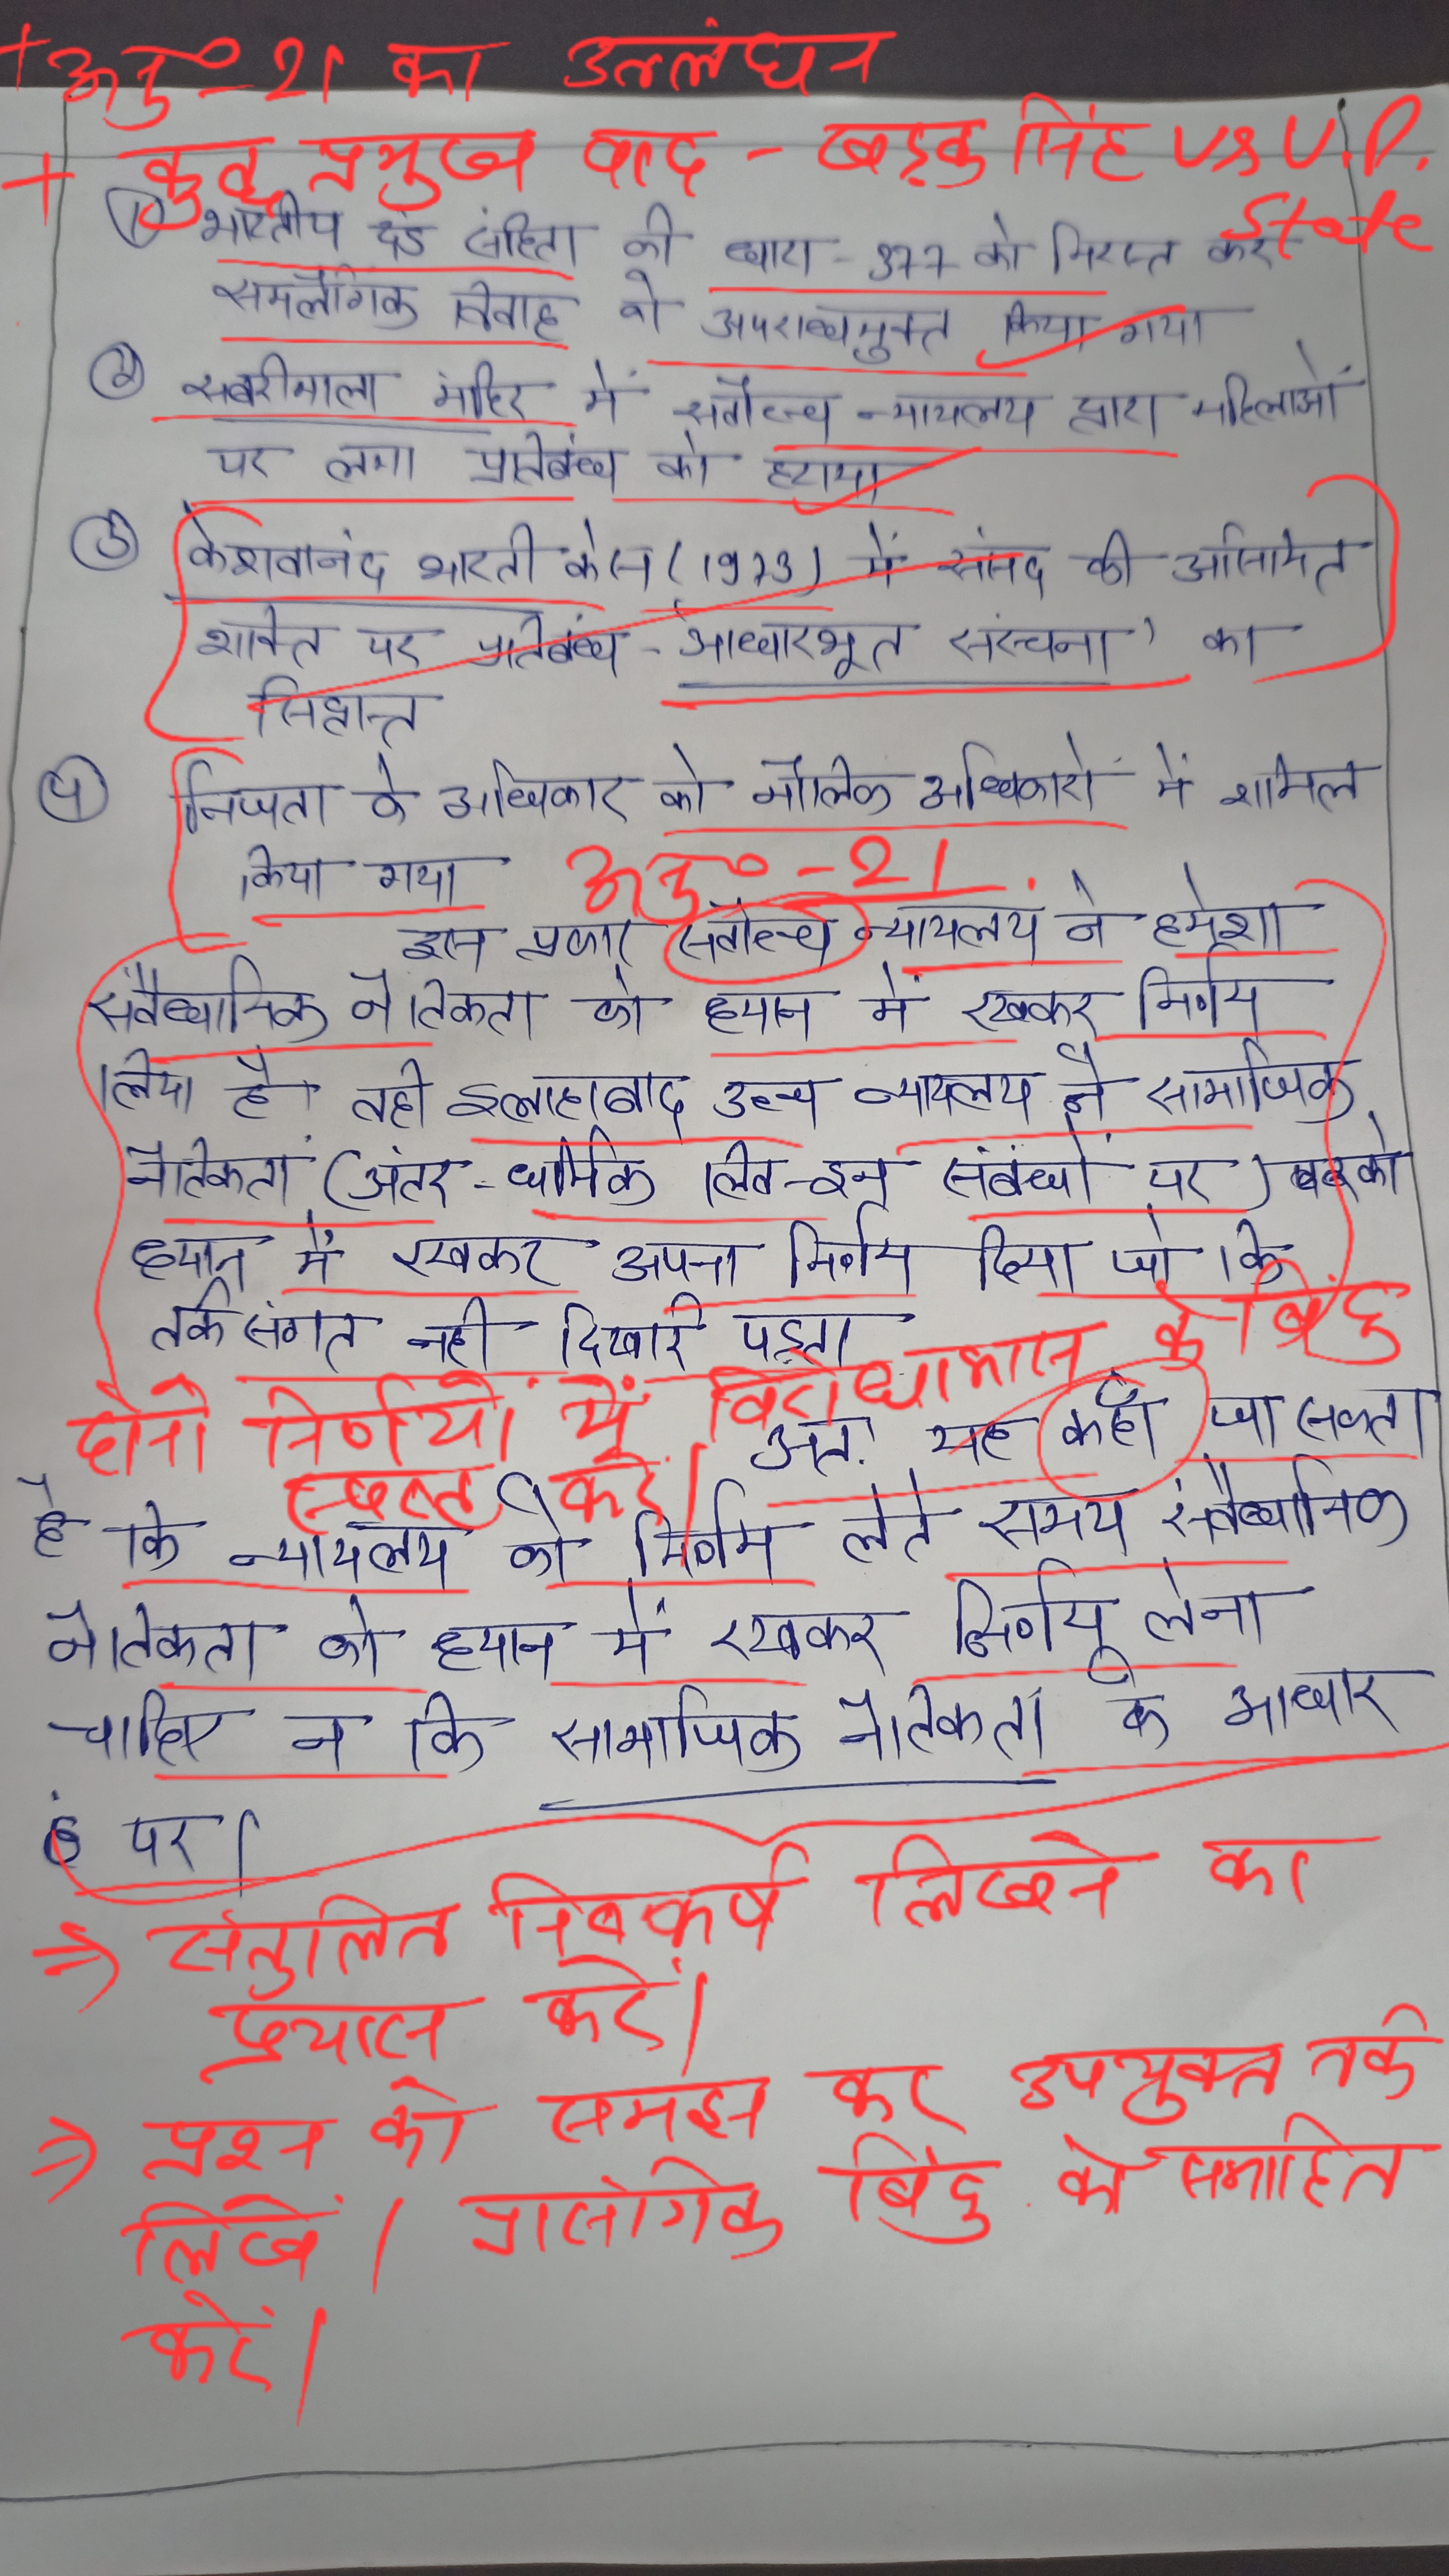 + अनु०-21 का उल्लंघन
+ कुछ प्रमुख वाद - खड़क सिंह Vs U.P. State
① भारतीय दंड संहिता की धारा-377 को निरस्त कर
समलैंगिक विवाह को अपराधमुक्त किया गया
② सबरीमाला मंदिर में सर्वोच्च न्यायलय द्वारा महिलाओं
पर लगा प्रतिबंध को हटाया
③ केशवानंद भारती केस (1973) में संसद की असिमित
शक्ति पर प्रतिबंध - 'आधारभूत संरचना' का
सिद्धान्त
④ निजता के अधिकार को मौलिक अधिकारों में शामिल
किया गया अनु०-21
इस प्रकार सर्वोच्च न्यायलय ने हमेशा
संवैधानिक नैतिकता को ध्यान में रखकर निर्णय
लिया है। वही इलाहाबाद उच्च न्यायलय ने सामाजिक
नैतिकता (अंतर-धार्मिक लिव-इन संबंधों पर) को
ध्यान में रखकर अपना निर्णय दिया जो कि
तर्कसंगत नही दिखाई पड़ता
दोनो निर्णयों में विरोधाभास के बिंदु
स्पष्ट करें।
अतः यह कहा जा सकता
है कि न्यायलय को निर्णय लेते समय संवैधानिक
नैतिकता को ध्यान में रखकर निर्णय लेना
चाहिए न कि सामाजिक नैतिकता के आधार
पर।
⇒ संतुलित निष्कर्ष लिखने का
प्रयास करें।
⇒ प्रश्न को समझ कर उपयुक्त तर्क
लिखें। प्रासंगिक बिंदु को समाहित
करें।